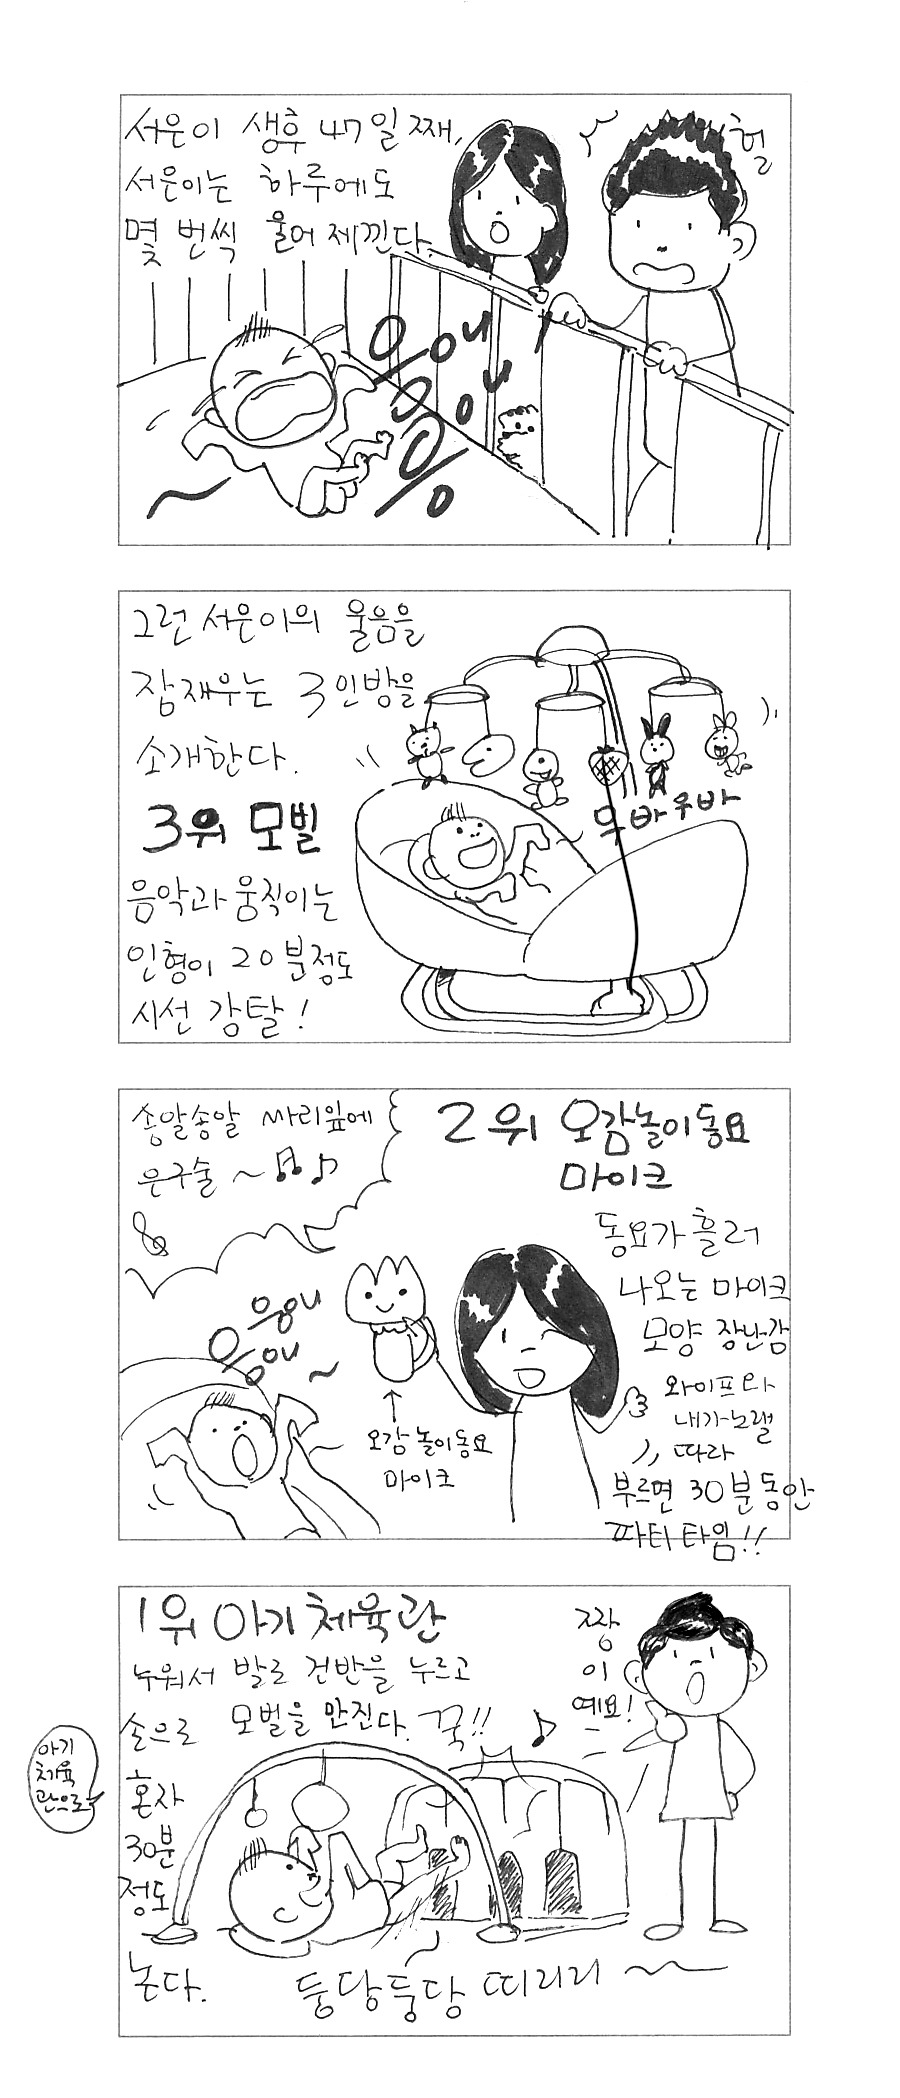 서운이 생후 47일 째,
서운이는 하루에도
몇 번씩 울어 제낀다.
헐
응애
응애
응
그런 서운이의 울음을
잠재우는 3인방을
소개한다.
3위 모빌
음악과 움직이는
인형이 20분정도
시선 강탈!
우바우바
송알송알 싸리잎에
은구슬~
2위 오감놀이동요
마이크
동요가 흘러
나오는 마이크
모양 장난감
와이프와
내가 노랠
따라
부르면 30분동안
파티 타임!!
응애
응애
오감놀이동요
마이크
1위 아기체육관
누워서 발로 건반을 누르고
손으로 모벌을 만진다. 꾹!!
혼자
30분
정도
논다.
짱
이
예요!
아기
체육
관으로
둥당둥당 띠리리